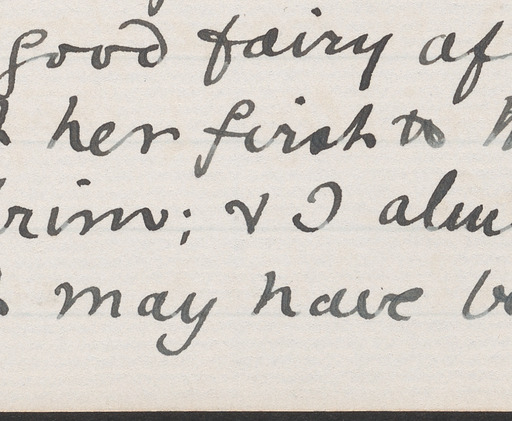 good fairy af
her first to
rim; & I alm
may have b